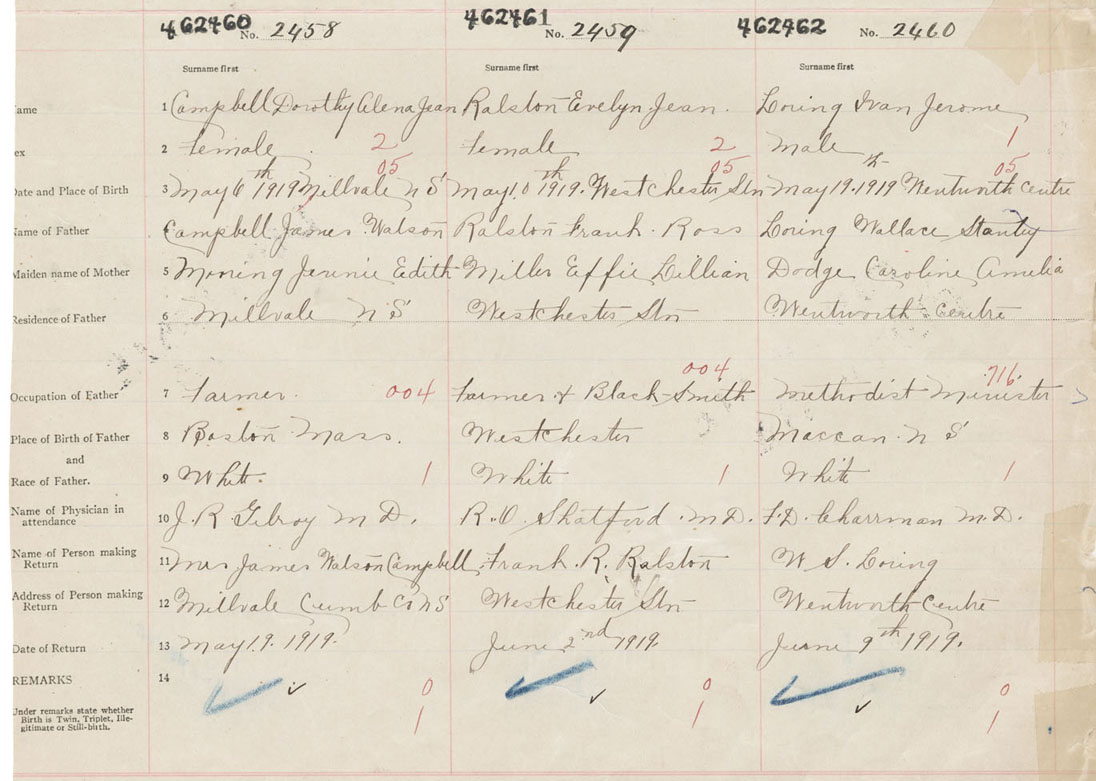 462460 No. 2458 462461 No. 2459 462462 No. 2460
Surname first Surname first Surname first
ame 1 Campbell Dorothy Alena Jean Ralston Evelyn Jean. Loring Ivan Jerome
ex 2 Female 2 Female 2 Male 1
05 05 05
Date and Place of Birth 3 May 6th 1919 Millvale N S May 10th 1919. Westchester Stn May 19th 1919 Wentworth Centre
Name of Father 4 Campbell James Watson Ralston Frank. Ross Loring Wallace Stanley
Maiden name of Mother 5 Jennie Edith Miller Effie Lillian Dodge Caroline Amelia
Residence of Father 6 Millvale N S Westchester Stn Wentworth Centre
004 716
Occupation of Father 7 Farmer. 004 Farmer & Black-Smith Methodist Minister
Place of Birth of Father 8 Boston Mass. Westchester Maccan N S
and
Race of Father. 9 White. 1 White 1 White 1
Name of Physician in
attendance 10 J. R Gilroy M D. R. O. Shatford. M.D. F.D. Charrman M.D.
Name of Person making
Return 11 Mrs James Watson Campbell Frank. R. Ralston W S. Loring
Address of Person making
Return 12 Millvale Cumb Co NS Westchester Stn Wentworth Centre
Date of Return 13 May 19. 1919. June 2nd 1919. June 9th 1919.
14
REMARKS 0 0 0
Under remarks state whether
Birth is Twin, Triplet, Ille- 1 1 1
gitimate or Still-birth.